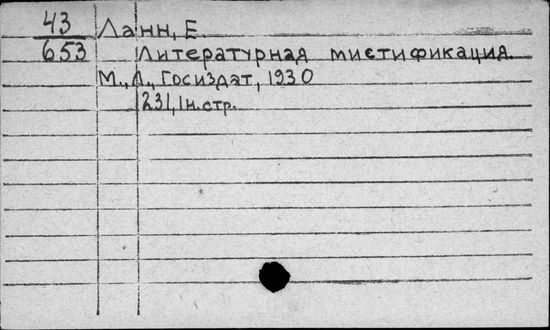 43 Ланн, Е.
653 Литературная мистификация.
М., Л., Госиздат, 1930
231, 1н. стр.